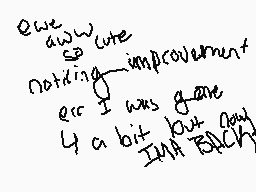 ewe
aww cute
so
noticing improvement
err I was gone
4 a bit but now
IMA BACK